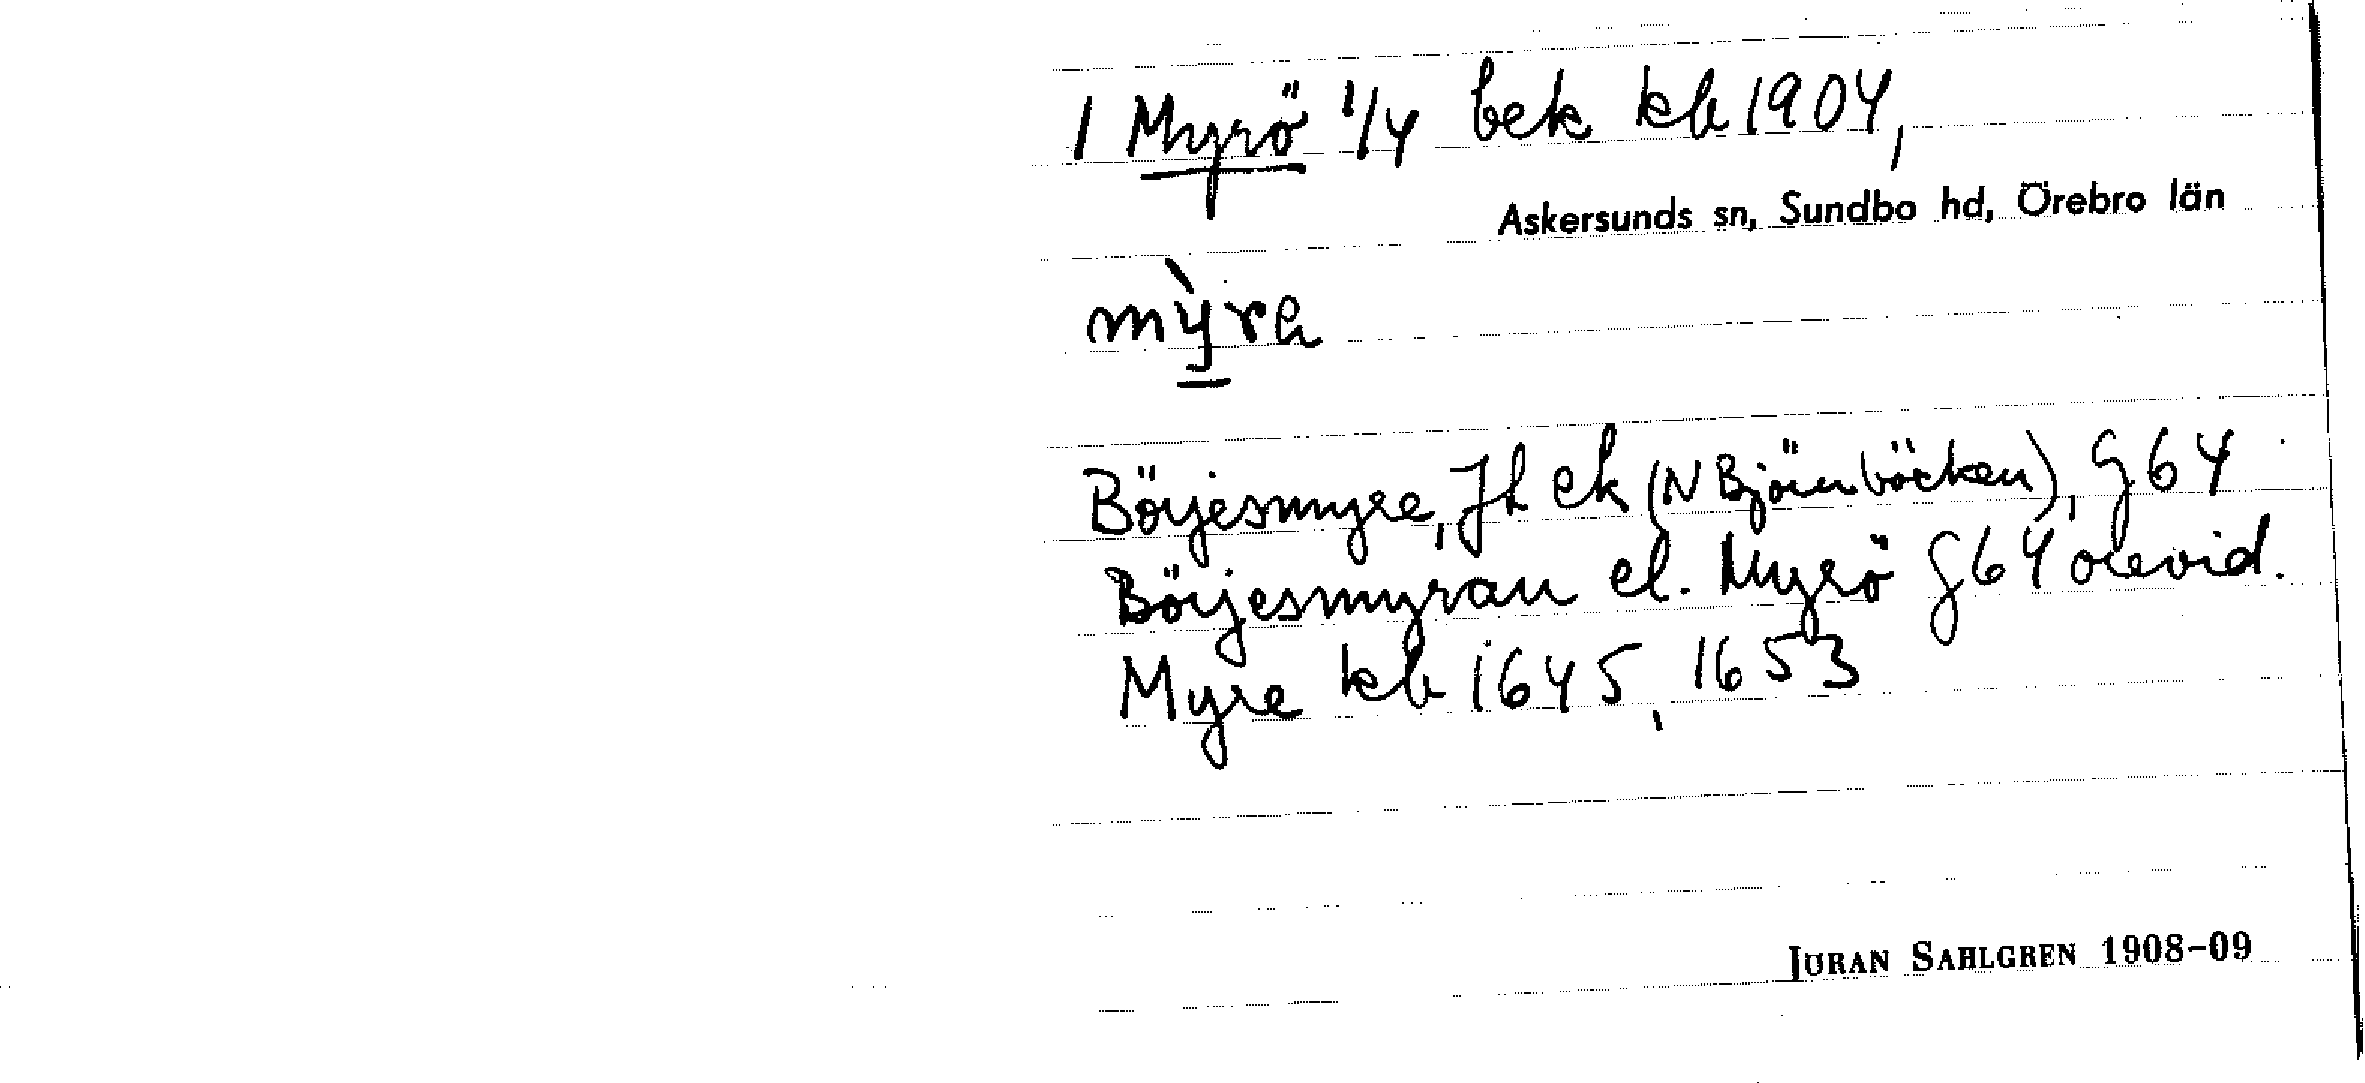 1 Myrö 1/4 bek kb 1904,
Askersunds sn, Sundbo hd, Örebro län
mỳ̱re
Börjesmyre, Jb ek (N Björnböcken), G64
Börjesmyran el. Myrö G64 revid.
Myre kb 1645, 1653
JÖRAN SAHLGREN 1908-09